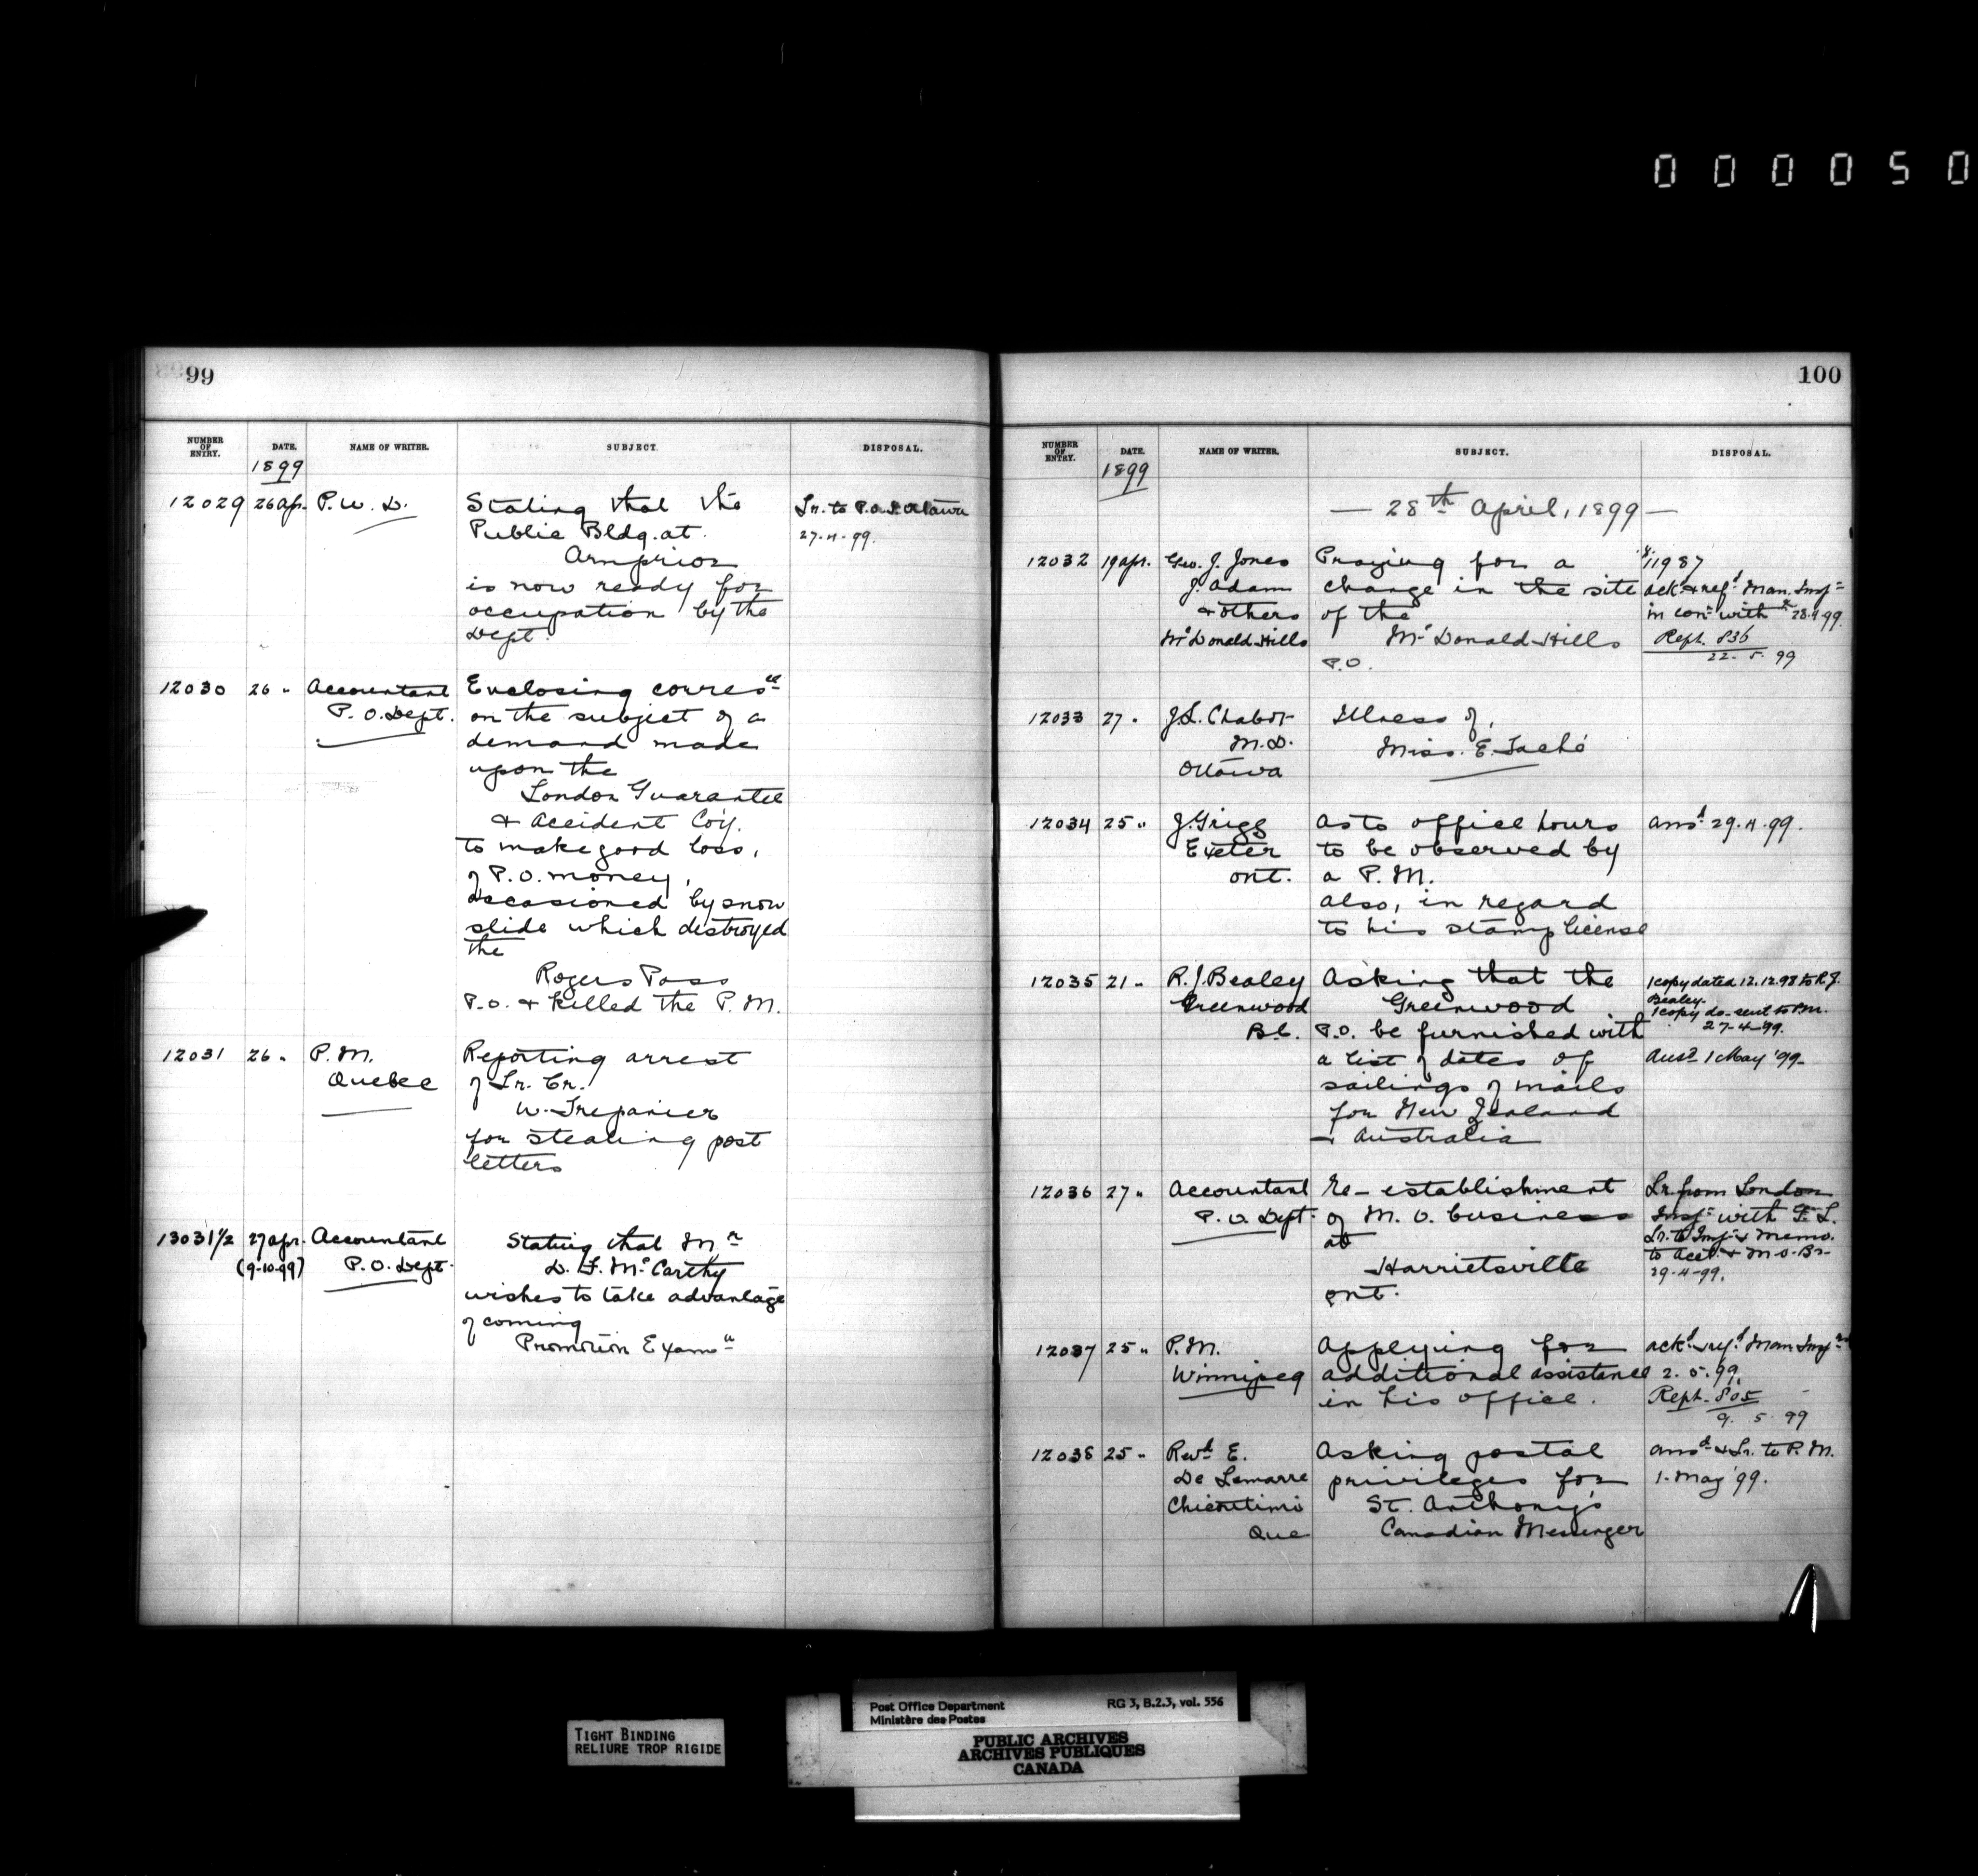 000050
99
NUMBER OF ENTRY. DATE. NAME OF WRITER. SUBJECT. DISPOSAL.
1899
12029 26 Apr. P. W. D. Stating that the Lr. to P.O.I. Ottawa
Public Bldg. at 27-4-99.
Arnprior
is now ready for
occupation by the
Dept.
12030 26 " Accountant Enclosing corresce
P. O. Dept. on the subject of a
demand made
upon the
London Guarantee
& Accident Coy.
to make good loss,
of P.O. money,
occasioned by snow
slide which destroyed
the
Rogers Pass
P.O. & killed the P.M.
12031 26 " P.M. Reporting arrest
Quebec of Lr. Cr.
W. Trepanier
for stealing post
letters
13031 1/2 27 Apr. Accountant Stating that Mr
(9-10-99) P.O. Dept. D. F. McCarthy
wishes to take advantage
of coming
Promotion Examn
100
NUMBER OF ENTRY. DATE. NAME OF WRITER. SUBJECT. DISPOSAL.
1899
— 28th April, 1899 —
12032 19 Apr. Geo. J. Jones Praying for a 11987
J. Adam change in the site ackd & refd Man. Insp
& others of the in con with 28.4.99.
McDonald Hills McDonald Hills Reph. 836
P.O. 22. 5. 99
12033 27 " J.L. Chabot Illness of,
M.D. Miss. E. Taché
Ottawa
12034 25 " J. Grigg As to office hours ansd 29.4.99.
Exeter to be observed by
Ont. a P.M.
also, in regard
to his stamp license
12035 21 " R.J. Bealey Asking that the 1 copy dated 12.12.98 to R.J.
Greenwood Greenwood Bealey.
B.C. P.O. be furnished with 1 copy do- sent to P.M.
27-4-99.
a list of dates of Ansd 1 May '99-
sailings of mails
for New Zealand
& Australia
12036 27 " Accountant Re-establishment Lr. from London
P.O. Dept. of M.O. business Insp with F.L.
at Lr. to Insp & Memo.
Harrietsville to Acct. & M.O. Br-
Ont. 29-4-99.
12037 25 " P.M. Applying for ackd & refd Man Insp
Winnipeg additional assistance 2.5.99.
in his office. Reph. 805
9. 5 99
12038 25 " Revd E. Asking postal ansd & Lr. to P.M.
De Lamarre privileges for 1 May '99.
Chicoutimi St. Anthony's
Que Canadian Messenger
Post Office Department RG 3, B.2.3, vol. 556
Ministère des Postes
TIGHT BINDING
RELIURE TROP RIGIDE
PUBLIC ARCHIVES
ARCHIVES PUBLIQUES
CANADA